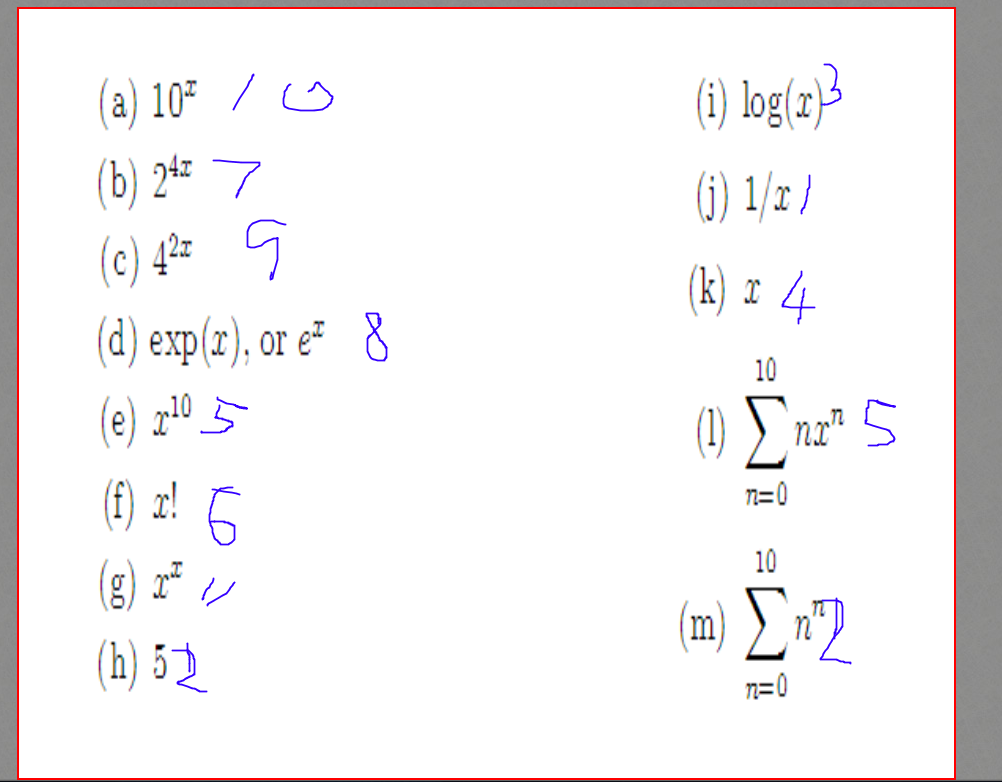 (a) 10ˣ 10
(b) 2⁴ˣ 7
(c) 4²ˣ 9
(d) exp(x), or eˣ 8
(e) x¹⁰ 5
(f) x! 6
(g) xˣ 11
(h) 5 2
(i) log(x) 3
(j) 1/x 1
(k) x 4
10
(l) ∑ nxⁿ 5
n=0
10
(m) ∑ nⁿ 2
n=0